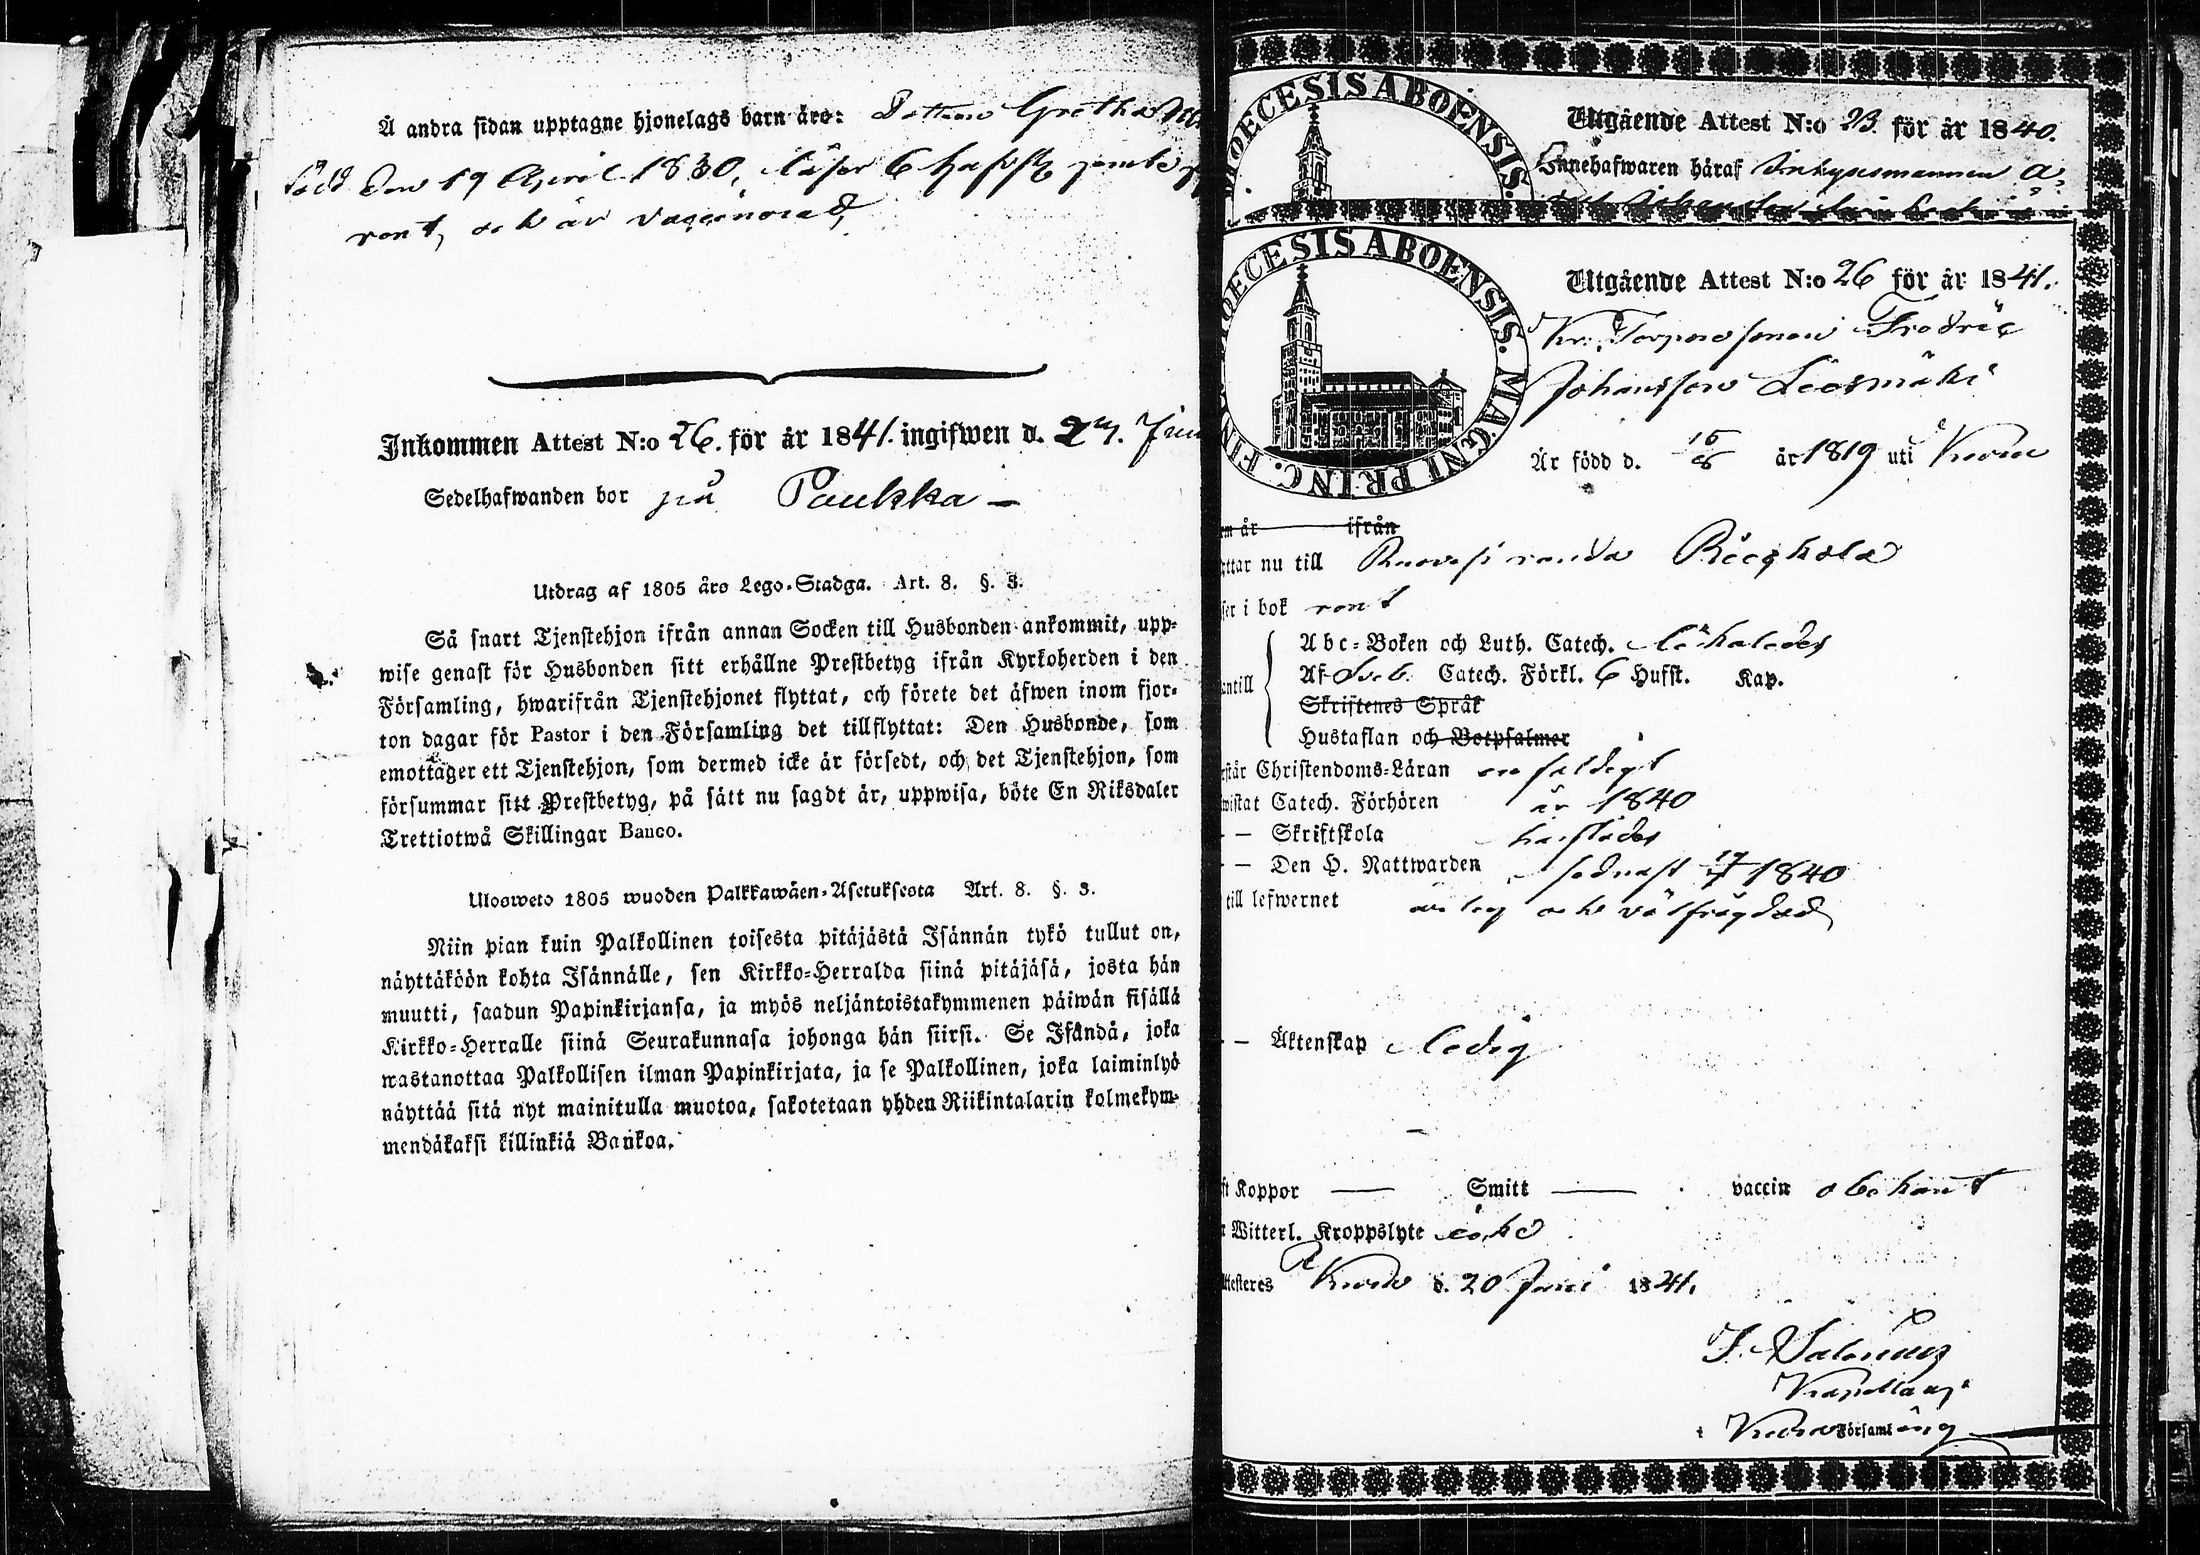 Å andra sidan upptagne hjonelags barn äro: Dottren Gretha
född den 19 April 1830, läser 6 hufst
rent, och är vaccinerad,
Inkommen Attest N:o 26. för år 1841. ingifwen d. 27. Juni
Sedelhafwanden bor på Paukka –
Utdrag af 1805 års Lego-Stadga. Art. 8. §. 3.
Så snart Tjenstehjon ifrån annan Socken till Husbonden ankommit, upp-
wise genast för Husbonden sitt erhållne Prestbetyg ifrån Kyrkoherden i den
Församling, hwarifrån Tjenstehjonet flyttat, och förete det äfwen inom fjor-
ton dagar för Pastor i den Församling det tillflyttat: Den Husbonde, som
emottager ett Tjenstehjon, som dermed icke är försedt, och det Tjenstehjon, som
försummar sitt Prestbetyg, på sätt nu sagdt är, uppwisa, böte En Riksdaler
Trettiotwå Skillingar Banco.
Ulosweto 1805 wuoden Palkkawäen-Asetuksesta Art. 8. §. 3.
Niin pian kuin Palkollinen toisesta pitäjästä Isännän tykö tullut on,
näyttäköön kohta Isännälle, sen Kirkko-Herralda siinä pitäjäsä, josta hän
muutti, saadun Papinkirjansa, ja myös neljäntoistakymmenen päiwän sisällä
Kirkko-Herralle siinä Seurakunnasa johonga hän siirsi. Se Isändä, joka
wastanottaa Palkollisen ilman Papinkirjata, ja se Palkollinen, joka laiminlyö
näyttää sitä nyt mainitulla muotoa, sakotetaan yhden Riikintalarin kolmekym-
mendäkaksi killinkiä Bankoa.
DIOECESIS ABOENSIS.
Utgående Attest N:o 23. för år 1840.
Innehafwaren häraf Inhysesmannen
DIOECESIS ABOENSIS. MAGNI PRINC. FIN
Utgående Attest N:o 26 för år 1841.
Torpare sonen Fredric
Johansson Leosmäki
Är född d. 15/8 år 1819 uti Keuru
om år ifrån
yttar nu till Ruovesi
ser i bok rent
Abc-Boken och Luth. Catech. likaledes
Af Sveb. Catech. Förkl. 6 Hufst. Kap.
antill
Skriftenes Språk
Hustaflan och Botpsalmer
rstår Christendoms-Läran enfaldigt
wistat Catech. Förhören år 1840
– – Skriftskola
– – Den H. Nattwarden sednast 1840
till lefwernet ärlig och välfrägdad
– – Äktenskap ledig
ft Koppor — Smitt — vaccin obekant
Witterl. Kroppslyte icke
ttesteras Keuru d. 20 Juni 1841.
Kapellan
i Keuru Församling